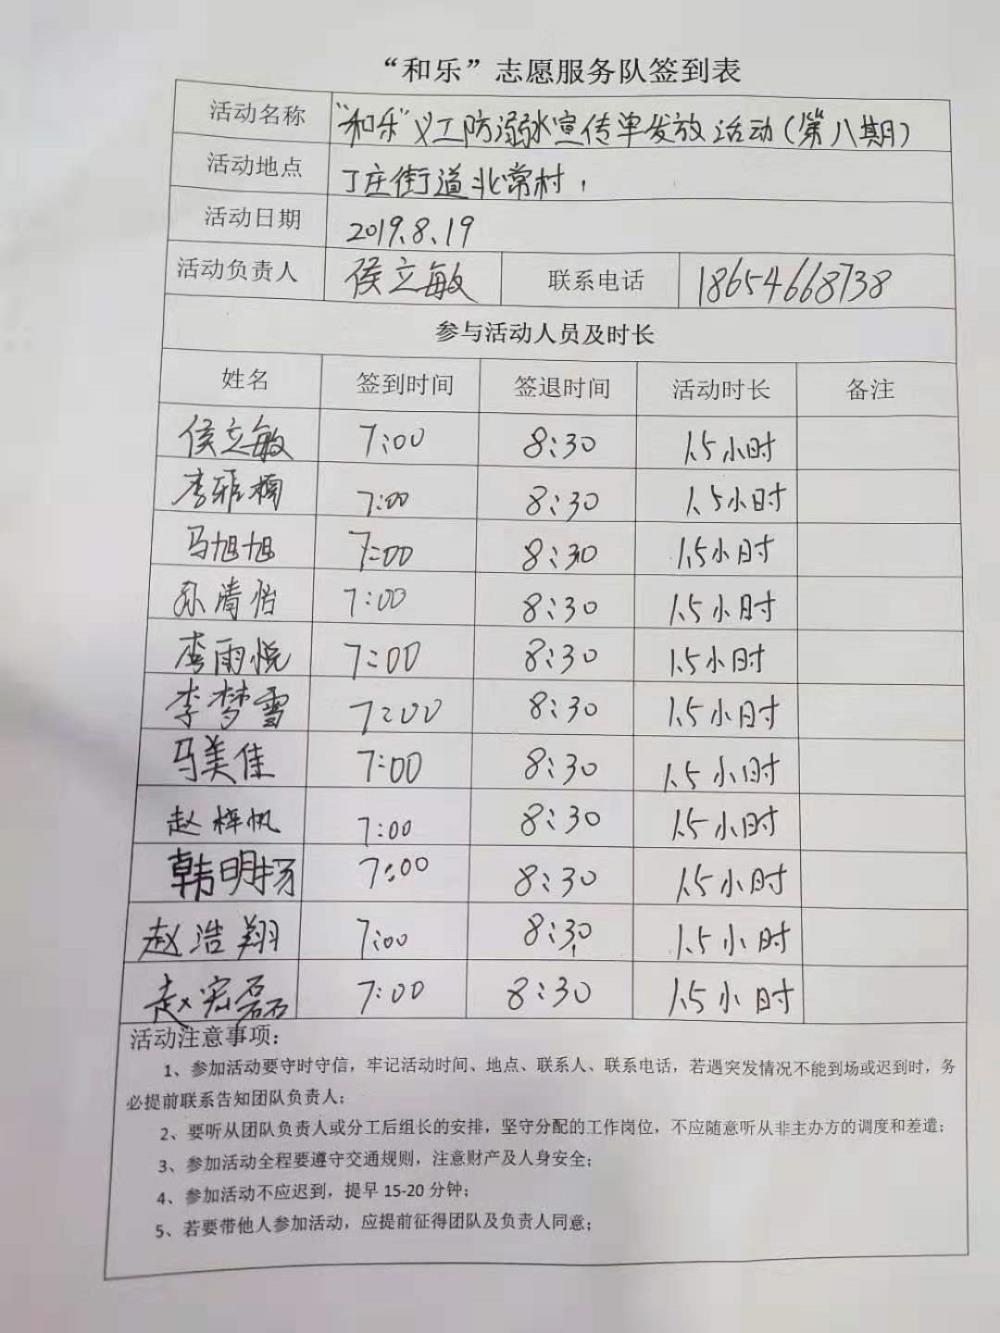 “和乐”志愿服务队签到表
活动名称 “和乐”义工防溺水宣传单发放活动(第八期)
活动地点 丁庄街道北常村
活动日期 2019.8.19
活动负责人 侯立敏 联系电话 18654668738
参与活动人员及时长
姓名 签到时间 签退时间 活动时长 备注
侯立敏 7:00 8:30 1.5小时
李雅楠 7:00 8:30 1.5小时
马旭旭 7:00 8:30 1.5小时
孙清怡 7:00 8:30 1.5小时
李雨悦 7:00 8:30 1.5小时
李梦雪 7:00 8:30 1.5小时
马美佳 7:00 8:30 1.5小时
赵梓帆 7:00 8:30 1.5小时
韩明扬 7:00 8:30 1.5小时
赵浩翔 7:00 8:30 1.5小时
赵宏磊 7:00 8:30 1.5小时
活动注意事项:
1、参加活动要守时守信，牢记活动时间、地点、联系人、联系电话，若遇突发情况不能到场或迟到时，务
必提前联系告知团队负责人;
2、要听从团队负责人或分工后组长的安排，坚守分配的工作岗位，不应随意听从非主办方的调度和差遣;
3、参加活动全程要遵守交通规则，注意财产及人身安全;
4、参加活动不应迟到，提早 15-20 分钟;
5、若要带他人参加活动，应提前征得团队及负责人同意;